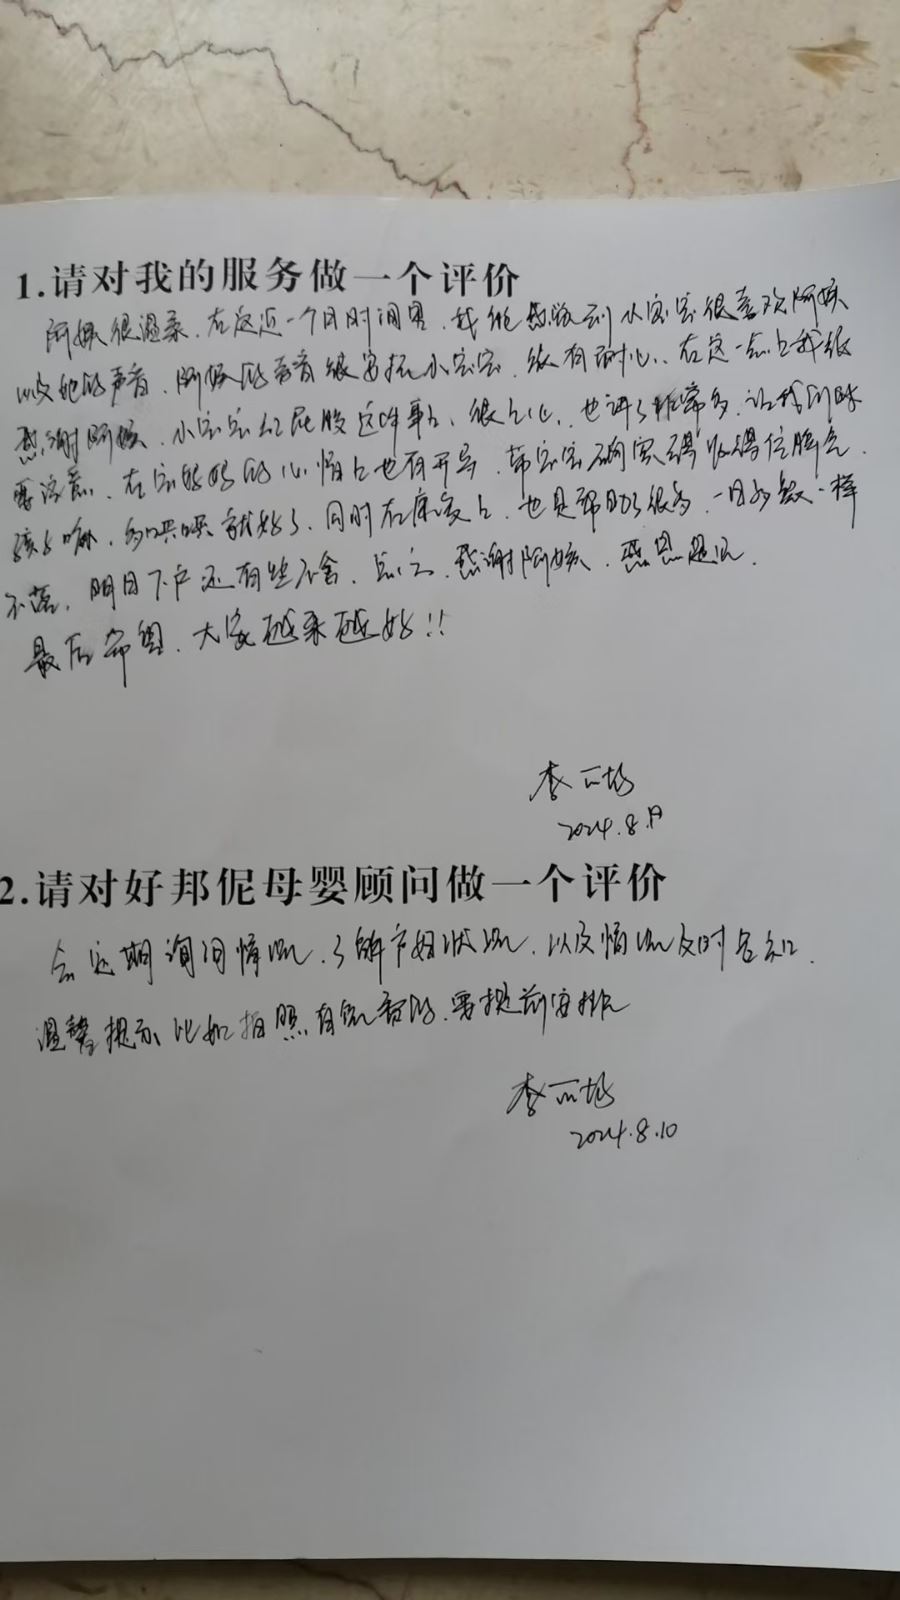 1.请对我的服务做一个评价
阿姨很温柔.在这近一个月时间里.我能感觉到小宝宝很喜欢阿姨
以及她的声音.阿姨的声音很安抚小宝宝.很有耐心.在这一点上我很
感谢阿姨.小宝宝红屁股这件事上.很上心.也讲了很多.让我们
要注意.在宝妈妈的心情上也有开导.带宝宝确实得收得住脾气.
孩子嘛.多哄哄就好了.同时在康复上.也是帮助了很多.一日多餐一样
不落.明日下户还有些不舍.总之.感谢阿姨.感恩遇见.
最后希望.大家越来越好!!
李
2024.8.
2.请对好邦伲母婴顾问做一个评价
会定期询问情况.了解产妇状况.以及情况及时告知.
温馨提示比如拍照有需要的.要提前安排
李
2024.8.10